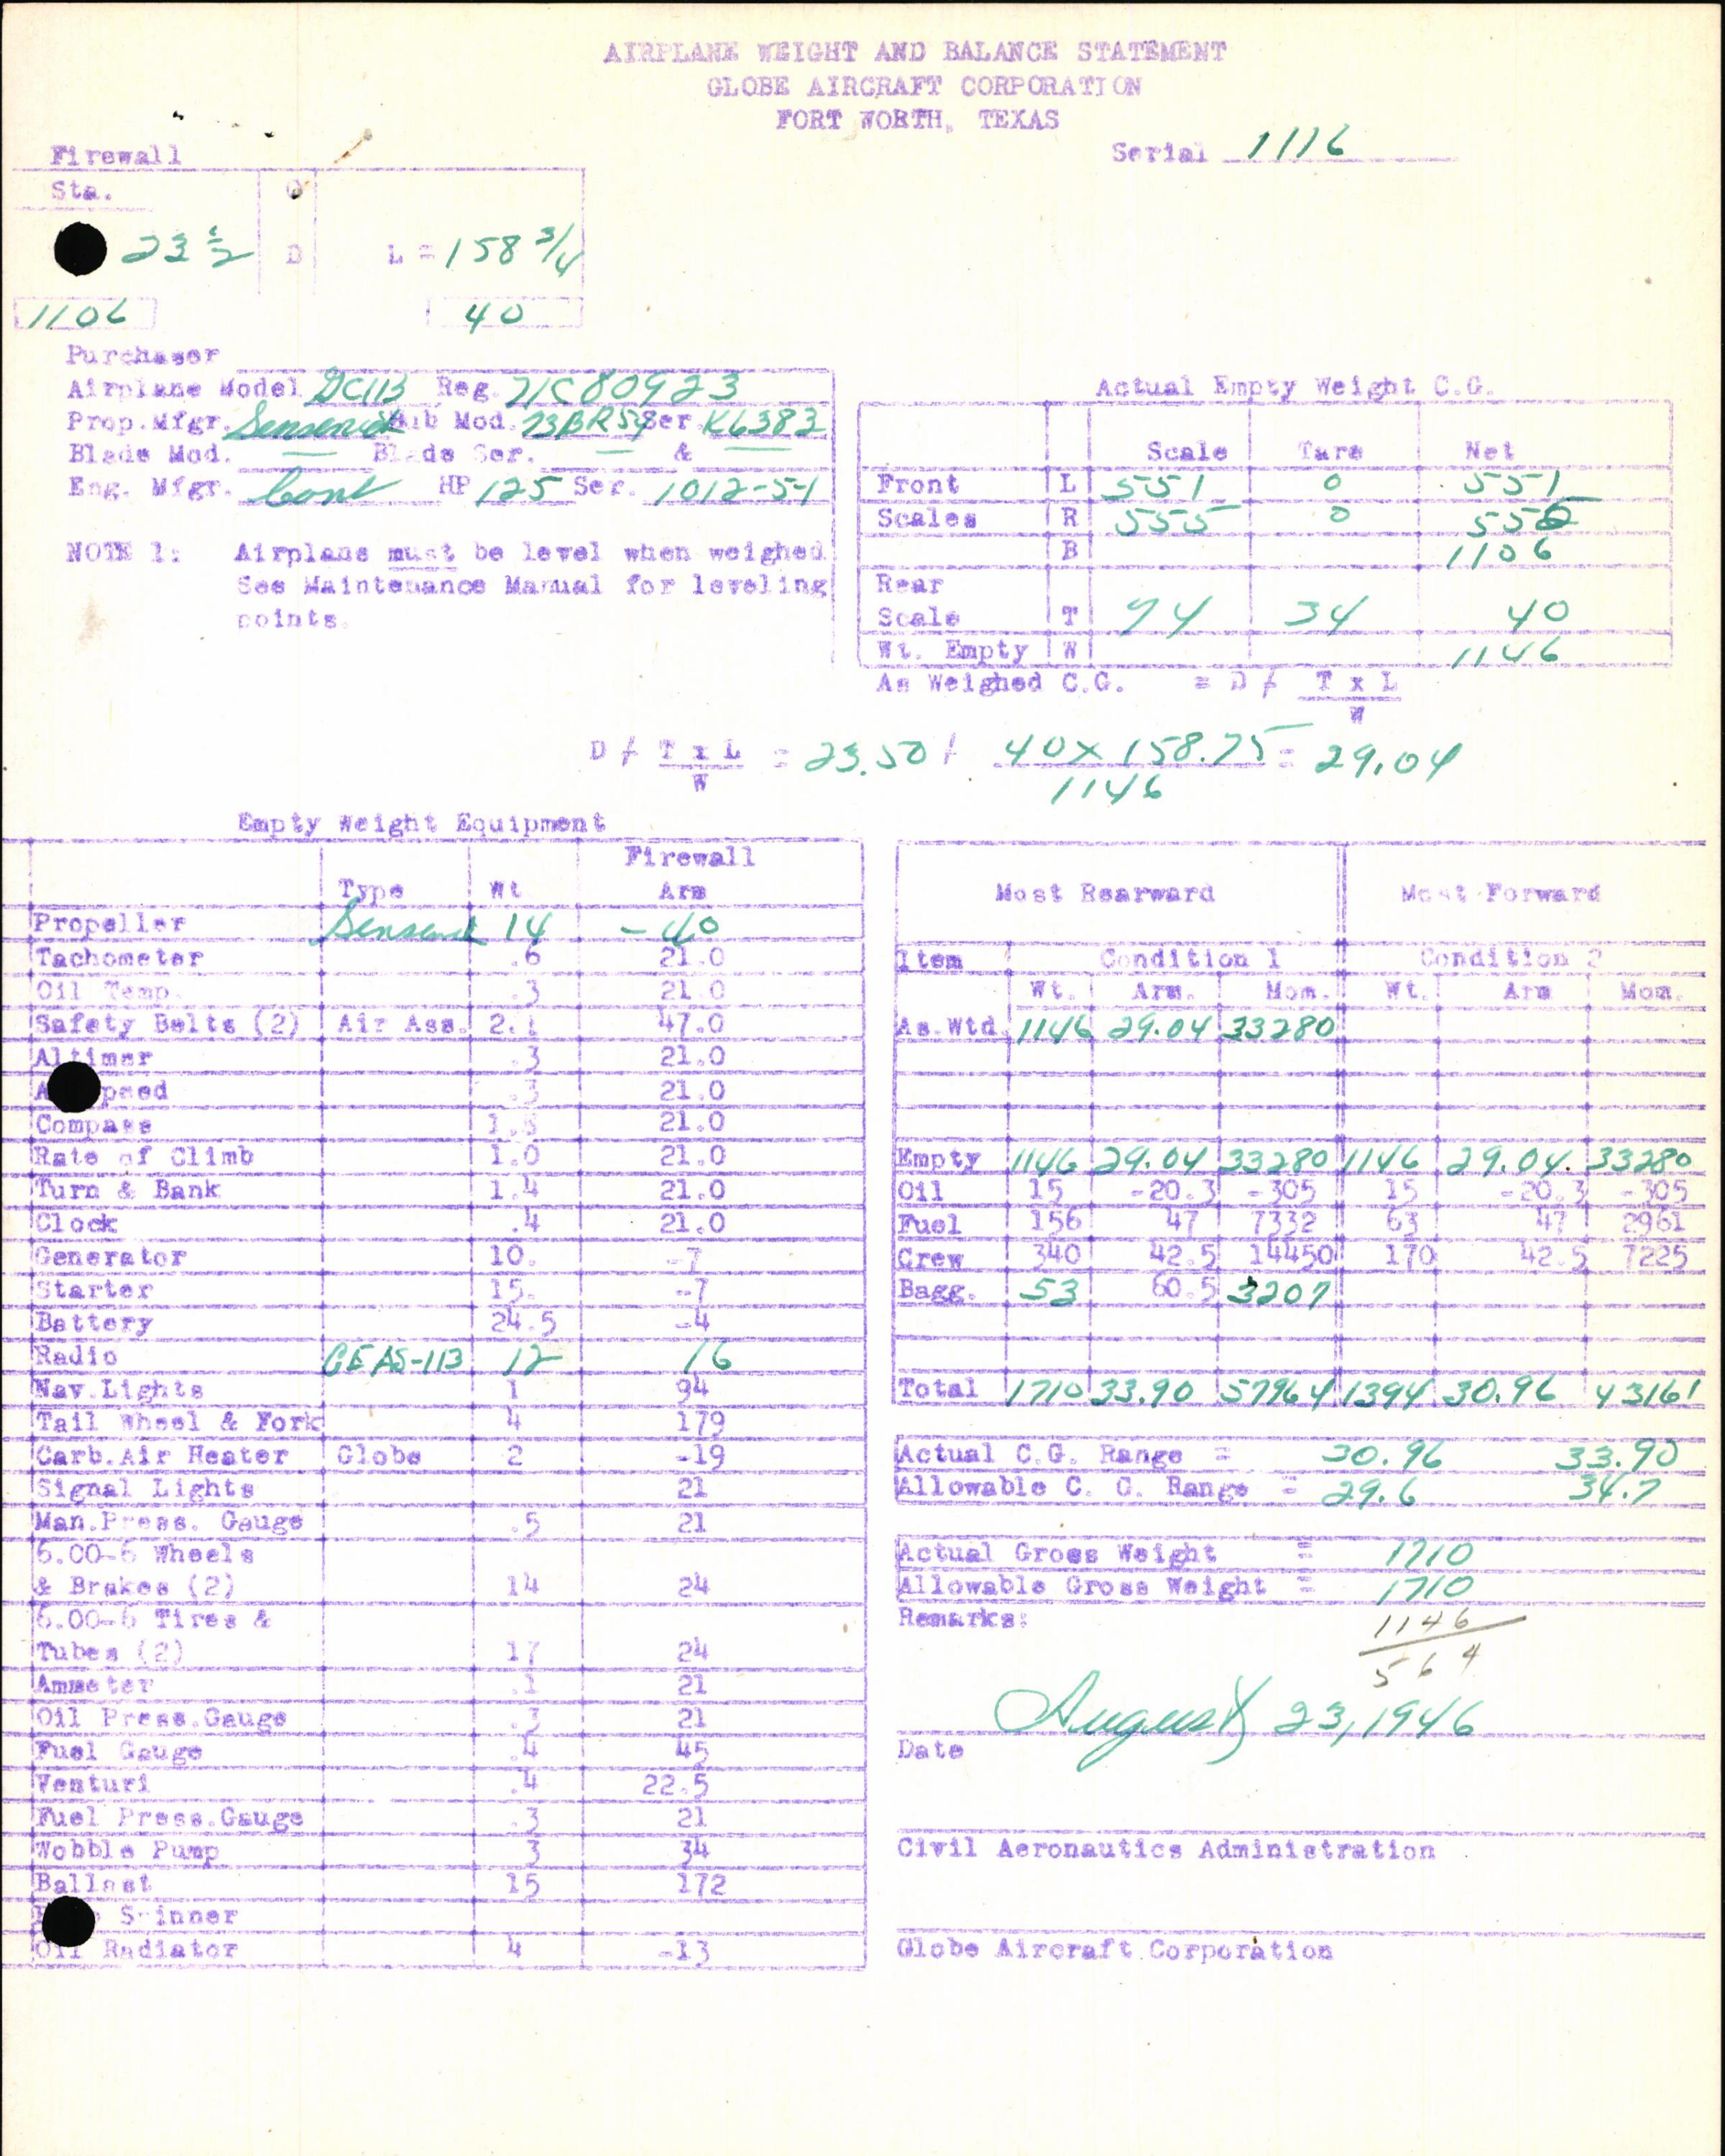 AIRPLANE WEIGHT AND BALANCE STATEMENT
GLOBE AIRCRAFT CORPORATION
FORT WORTH, TEXAS
Serial 1116
Firewall
Sta.
23 1/2 D L = 158 3/4
1106 40
Purchaser
Airplane Model GC1B Reg. NC80923
Prop.Mfgr. Sensenich Hub Mod. 73BR54 Ser. K6383
Blade Mod. — Blade Ser. — & —
Eng. Mfgr. Cont HP 125 Ser. 1012-5-1
NOTE 1: Airplane must be level when weighed.
See Maintenance Manual for leveling
points.
Actual Empty Weight C.G.
Scale Tare Net
Front L 551 0 551
Scales R 555 0 555
B 1106
Rear
Scale T 74 34 40
Wt. Empty W 1146
As Weighed C.G. = D + T x L
W
D + T x L = 23.50 + 40 x 158.75 = 29.04
W 1146
Empty Weight Equipment
Type Wt Firewall Arm
Propeller Sensenich 14 -40
Tachometer .6 21.0
Oil Temp. .3 21.0
Safety Belts (2) Air Ass. 2.1 47.0
Altimer .3 21.0
.3 21.0
Compass 21.0
Rate of Climb 1.0 21.0
Turn & Bank 1.4 21.0
Clock .4 21.0
Generator 10. -7
Starter 15. -7
Battery 24.5 -4
Radio GE AS-1B 12 16
Nav.Lights 1 94
Tail Wheel & Fork 4 179
Carb.Air Heater Globe 2 -19
Signal Lights 21
Man.Press. Gauge .5 21
6.00-6 Wheels
& Brakes (2) 14 24
6.00-6 Tires &
Tubes (2) 17 24
Ammeter .1 21
Oil Press.Gauge .3 21
Fuel Gauge .4 45
Venturi .4 22.5
Fuel Press.Gauge .3 21
Wobble Pump 3 34
Ballast 15 172
Spinner
Oil Radiator 4 -13
Most Rearward Most Forward
Item Condition 1 Condition 2
Wt. Arm. Mom. Wt. Arm Mom.
As Wtd. 1146 29.04 33280
Empty 1146 29.04 33280 1146 29.04 33280
Oil 15 -20.3 -305 15 -20.3 -305
Fuel 156 47 7332 63 47 2961
Crew 340 42.5 14450 170 42.5 7225
Bagg. 53 60.5 3207
Total 1710 33.90 57964 1394 30.96 43161
Actual C.G. Range = 30.96 33.90
Allowable C. G. Range = 29.6 34.7
Actual Gross Weight = 1710
Allowable Gross Weight = 1710
Remarks:
1146
564
August 23, 1946
Date
Civil Aeronautics Administration
Globe Aircraft Corporation